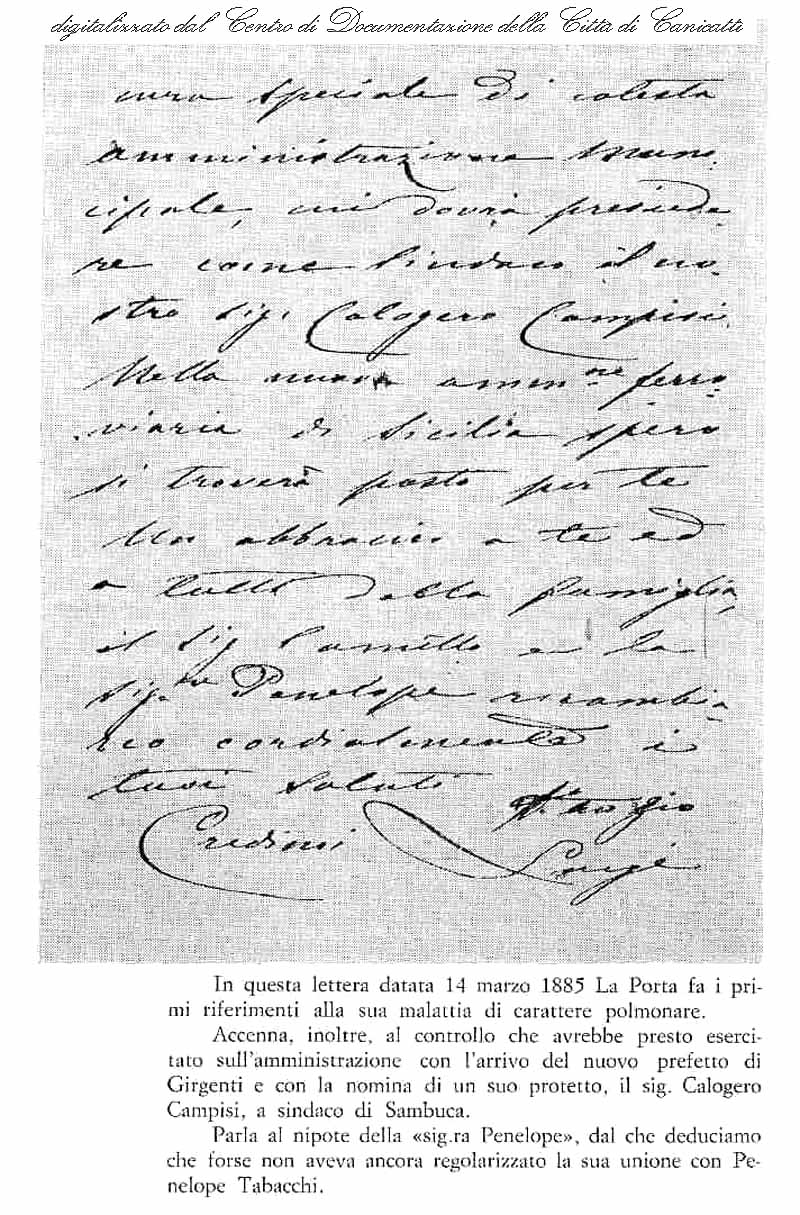 digitalizzato dal Centro di Documentazione della Città di Canicattì
cura speciale di cotesta
amministrazione Muni-
cipale, cui dovrà presiede-
re come Sindaco il no-
stro Sig. Calogero Campisi.
Nella nuova amm.ne ferro-
viaria di Sicilia spero
si troverà posto per te
Un abbraccio a te ed
a tutti della famiglia,
il Sig Camillo e la
Sig.ra Penelope ricambia-
no cordialmente i
tuoi saluti
Credimi
Tuo zio
Luigi
In questa lettera datata 14 marzo 1885 La Porta fa i pri-
mi riferimenti alla sua malattia di carattere polmonare.
Accenna, inoltre, al controllo che avrebbe presto eserci-
tato sull'amministrazione con l'arrivo del nuovo prefetto di
Girgenti e con la nomina di un suo protetto, il sig. Calogero
Campisi, a sindaco di Sambuca.
Parla al nipote della «sig.ra Penelope», dal che deduciamo
che forse non aveva ancora regolarizzato la sua unione con Pe-
nelope Tabacchi.